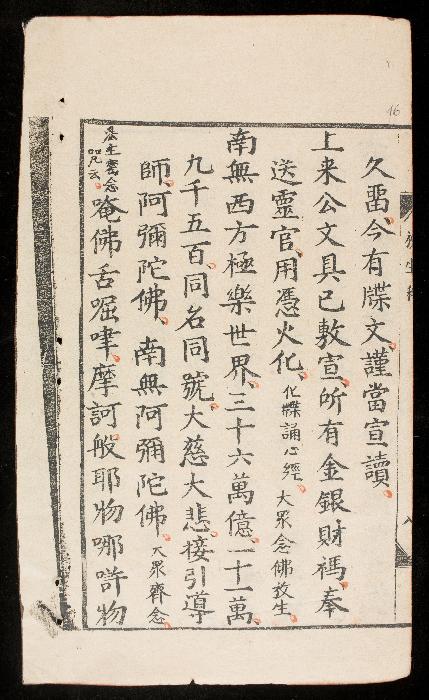 16
久畱今有牒文謹當宣讀
上来公文具已敷宣所有金銀財禡奉
送靈官用憑火化化牒誦心經大眾念佛放生
南無西方極樂世界三十六萬億一十一萬
九千五百同名同號大慈大悲接引導
師阿彌陀佛南無阿彌陀佛大眾齊念
唵佛舌啒㖀摩訶般耶物哪謣物